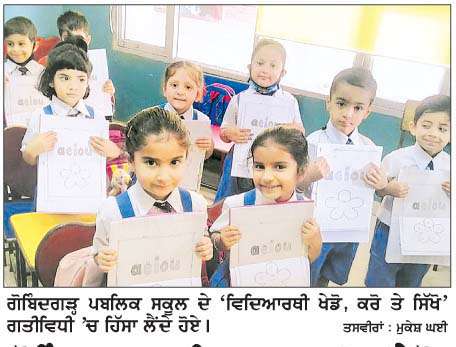 aeiou
aeiou
aeiou
aeiou
aeiou
ਗੋਬਿੰਦਗੜ੍ਹ ਪਬਲਿਕ ਸਕੂਲ ਦੇ ‘ਵਿਦਿਆਰਥੀ ਖੇਡੋ, ਕਰੋ ਤੇ ਸਿੱਖੋ’
ਗਤੀਵਿਧੀ ’ਚ ਹਿੱਸਾ ਲੈਂਦੇ ਹੋਏ।
ਤਸਵੀਰਾਂ : ਮੁਕੇਸ਼ ਘਈ